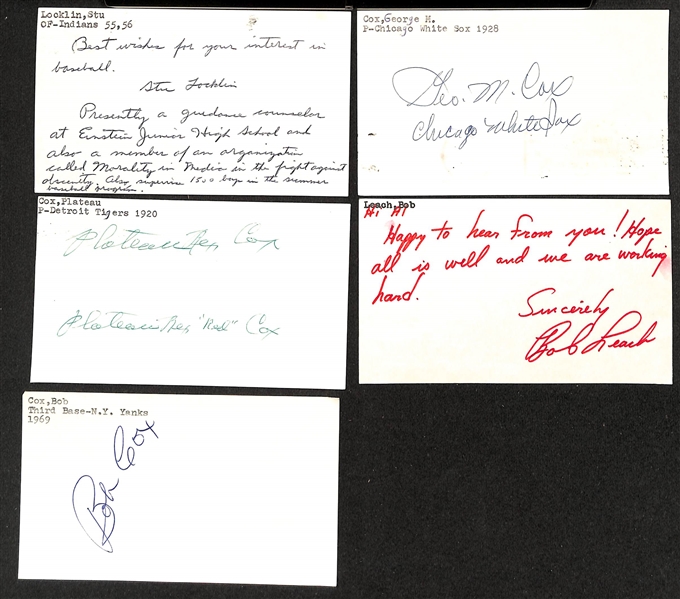 Locklin,Stu
OF-Indians 55,56
Best wishes for your interest in
baseball.
Stu Locklin
Presently a guidance counselor
at Einstein Junior High School and
also a member of an organization
called Morality in Media in the fight against
obscenity. Also supervise 1500 boys in the summer
baseball program.
Cox,George M.
P-Chicago White Sox 1928
Geo. M. Cox
Chicago White Sox
Cox,Plateau
P-Detroit Tigers 1920
Plateau Rex Cox
Plateau Rex "Red" Cox
Leach,Bob
Hi Al
Happy to hear from you! Hope
all is well and we are working
hard.
Sincerely
Bob Leach
Cox,Bob
Third Base-N.Y. Yanks
1969
Bob Cox